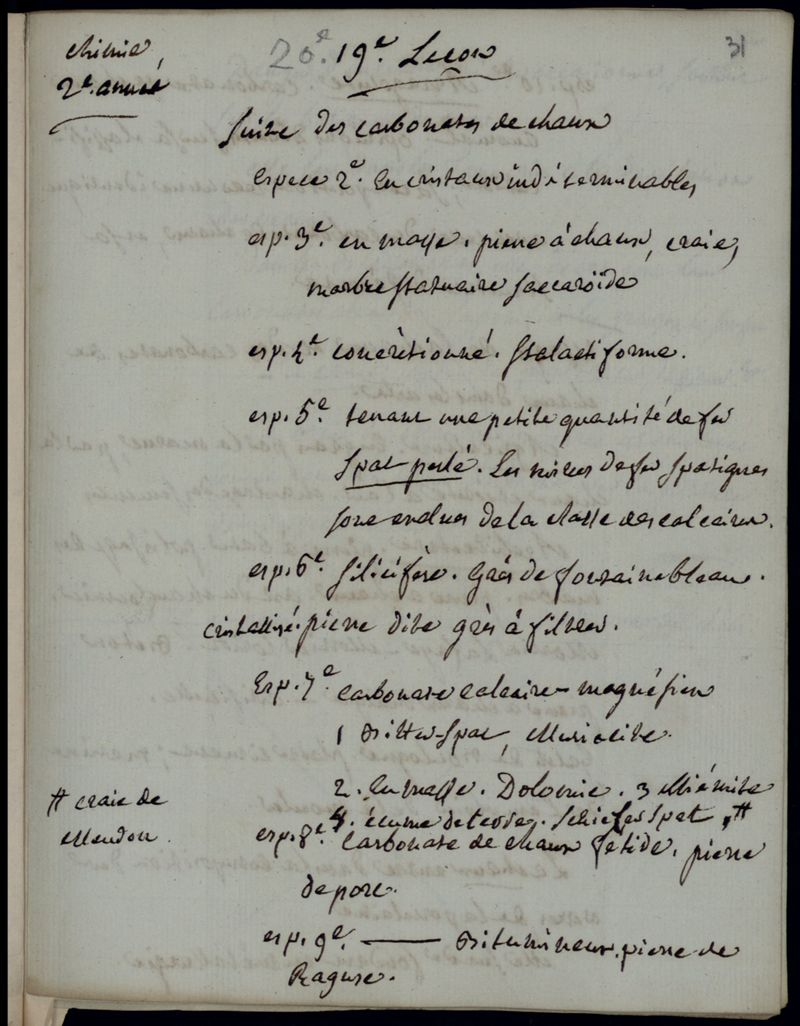 chimie,
2e. année
20e. 19e. Lecon
31
suite des carbonates de chaux
espece 2e. en cristaux indéterminables
esp. 3e. en masse. pierre à chaux, craie,
marbre statuaire saccaroïde
esp. 4e. concrètionné. stalactiforme.
esp. 5e. tenant une petite quantité de fer
spat perlé. Les mines de fer spatiques
sont exclues de la classe des calcaires.
esp. 6e. silicifère. grès de fontainebleau.
cristallisé. pierre dite grès à filtrer.
Esp. 7e. carbonate calcaire - magnésien
1 Bitter-spat, Muriacite.
2. en masse. Dolomie. 3 Miémite
4. écume de terre. schiefer spat, #
# craie de
Meudon.
esp. 8e. carbonate de chaux fetide. pierre
de porc.
esp. 9e. ——— Bitumineux. pierre de
Raguse.